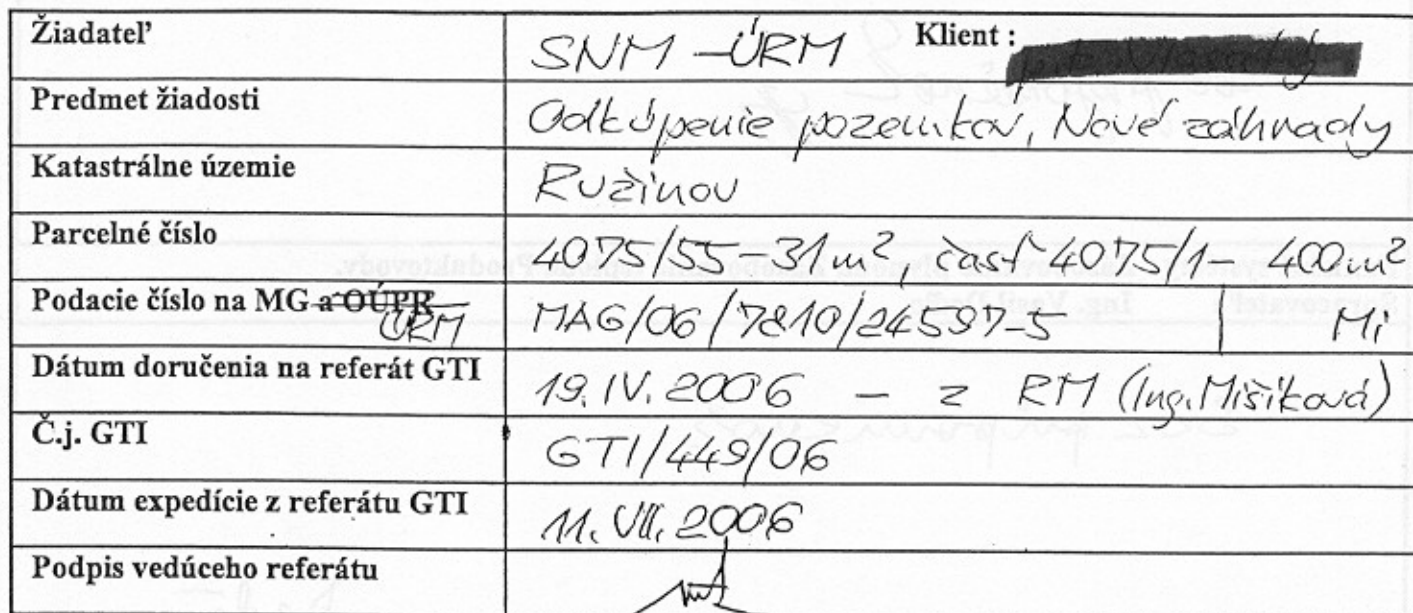 Žiadateľ SNM - ÚRM Klient :
Predmet žiadosti Odkúpenie pozemkov, Nové záhrady
Katastrálne územie Ružinov
Parcelné číslo 4075/55-31m², časť 4075/1- 400m²
Podacie číslo na MG a OÚPR ÚRM MAG/06/7810/24597-5 | Mi
Dátum doručenia na referát GTI 19.IV.2006 - z RM (Ing.Mišíková)
Č.j. GTI GTI/449/06
Dátum expedície z referátu GTI 11.VII.2006
Podpis vedúceho referátu